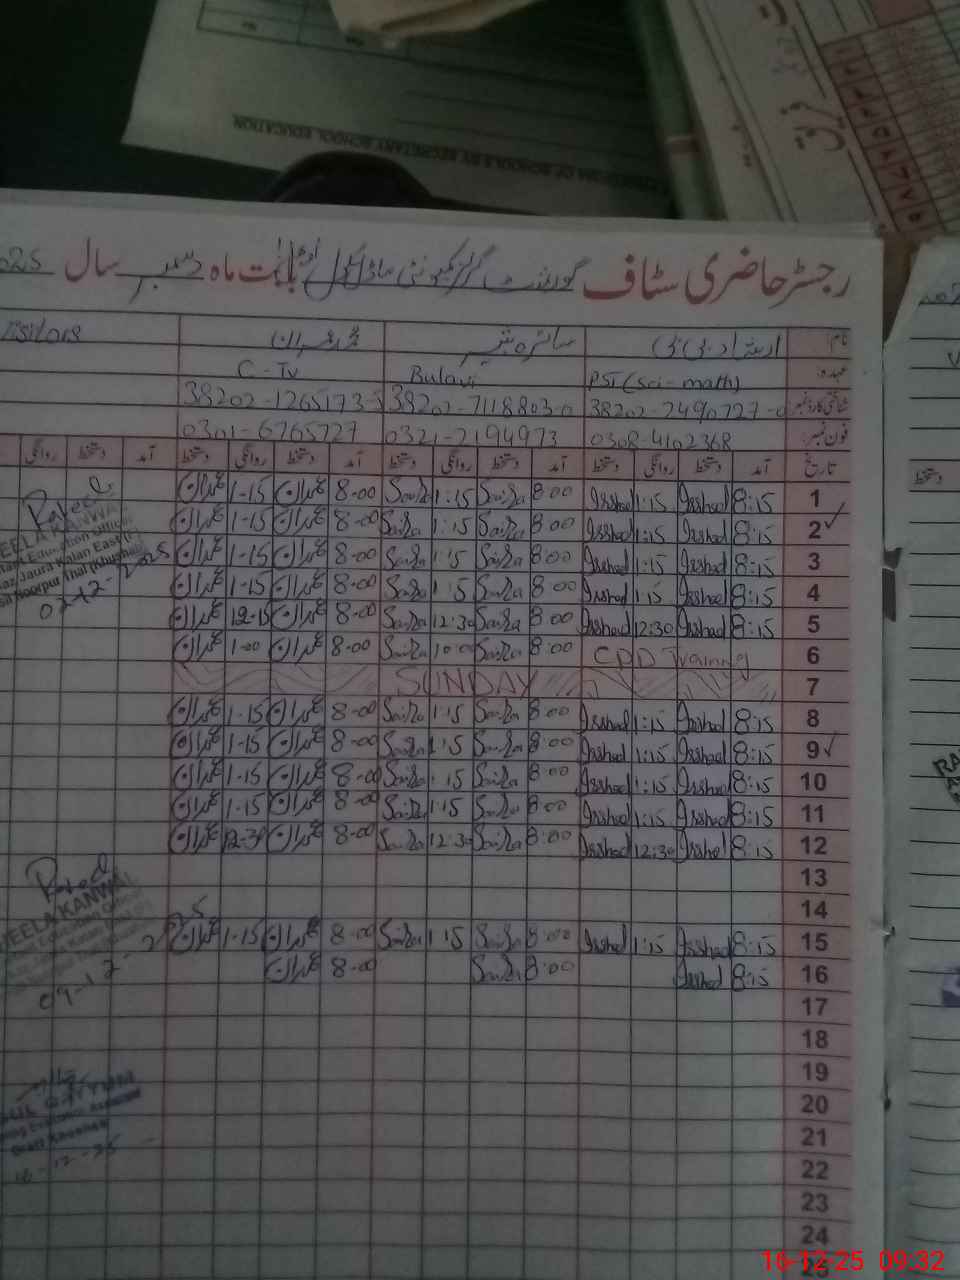 رجسٹر حاضری سٹاف گورنمنٹ گرلز کمیونٹی ماڈل سکول بابت ماہ دسمبر سال 025
نام: ارشاد بی بی سائرہ بشیر محمد عمران Visitors
عہدہ: PST (Sci-math) C-IV
شناختی کارڈ نمبر 38202-7490727-0 38202-7118803-0 38202-1265173-
فون نمبر: 0308-4102368 0321-7194973 0301-6765727
تاریخ آمد دستخط روانگی دستخط آمد دستخط روانگی دستخط آمد دستخط روانگی دستخط آمد دستخط روانگی
1 8:15 Irshad 1:15 Irshad 8:00 Saira 1:15 Saira 8-00 عمران 1-15 عمران
2 ✓ 8:15 Irshad 1:15 Irshad 8:00 Saira 1:15 Saira 8-00 عمران 1-15 عمران
3 8:15 Irshad 1:15 Irshad 8:00 Saira 1:15 Saira 8-00 عمران 1-15 عمران
4 8:15 Irshad 1:15 Irshad 8:00 Saira 1:15 Saira 8-00 عمران 1-15 عمران
5 8:15 Irshad 12:30 Irshad 8:00 Saira 12:30 Saira 8-00 عمران 12-15 عمران
6 CPD Training 8:00 Saira 10:00 Saira 8-00 عمران 1-00 عمران
7 SUNDAY
8 8:15 Irshad 1:15 Irshad 8:00 Saira 1:15 Saira 8-00 عمران 1-15 عمران
9 ✓ 8:15 Irshad 1:15 Irshad 8:00 Saira 1:15 Saira 8-00 عمران 1-15 عمران
10 8:15 Irshad 1:15 Irshad 8:00 Saira 1:15 Saira 8-00 عمران 1-15 عمران
11 8:15 Irshad 1:15 Irshad 8:00 Saira 1:15 Saira 8-00 عمران 1-15 عمران
12 8:15 Irshad 12:30 Irshad 8:00 Saira 12:30 Saira 8-00 عمران 12-30 عمران
13
14
15 8:15 Irshad 1:15 Irshad 8:00 Saira 1:15 Saira 8-00 عمران 1-15 عمران
16 8:15 Irshad 8:00 Saira 8-00 عمران
17
18
19
20
21
22
23
24
25
EELA KANWAL
Jaura Kalan East
02-12-2025
EELA KANWAL
09-12-2025
16-12-25
OF SCHOOLS BY SECRETARY SCHOOL EDUCATION
16-12-25 09:32